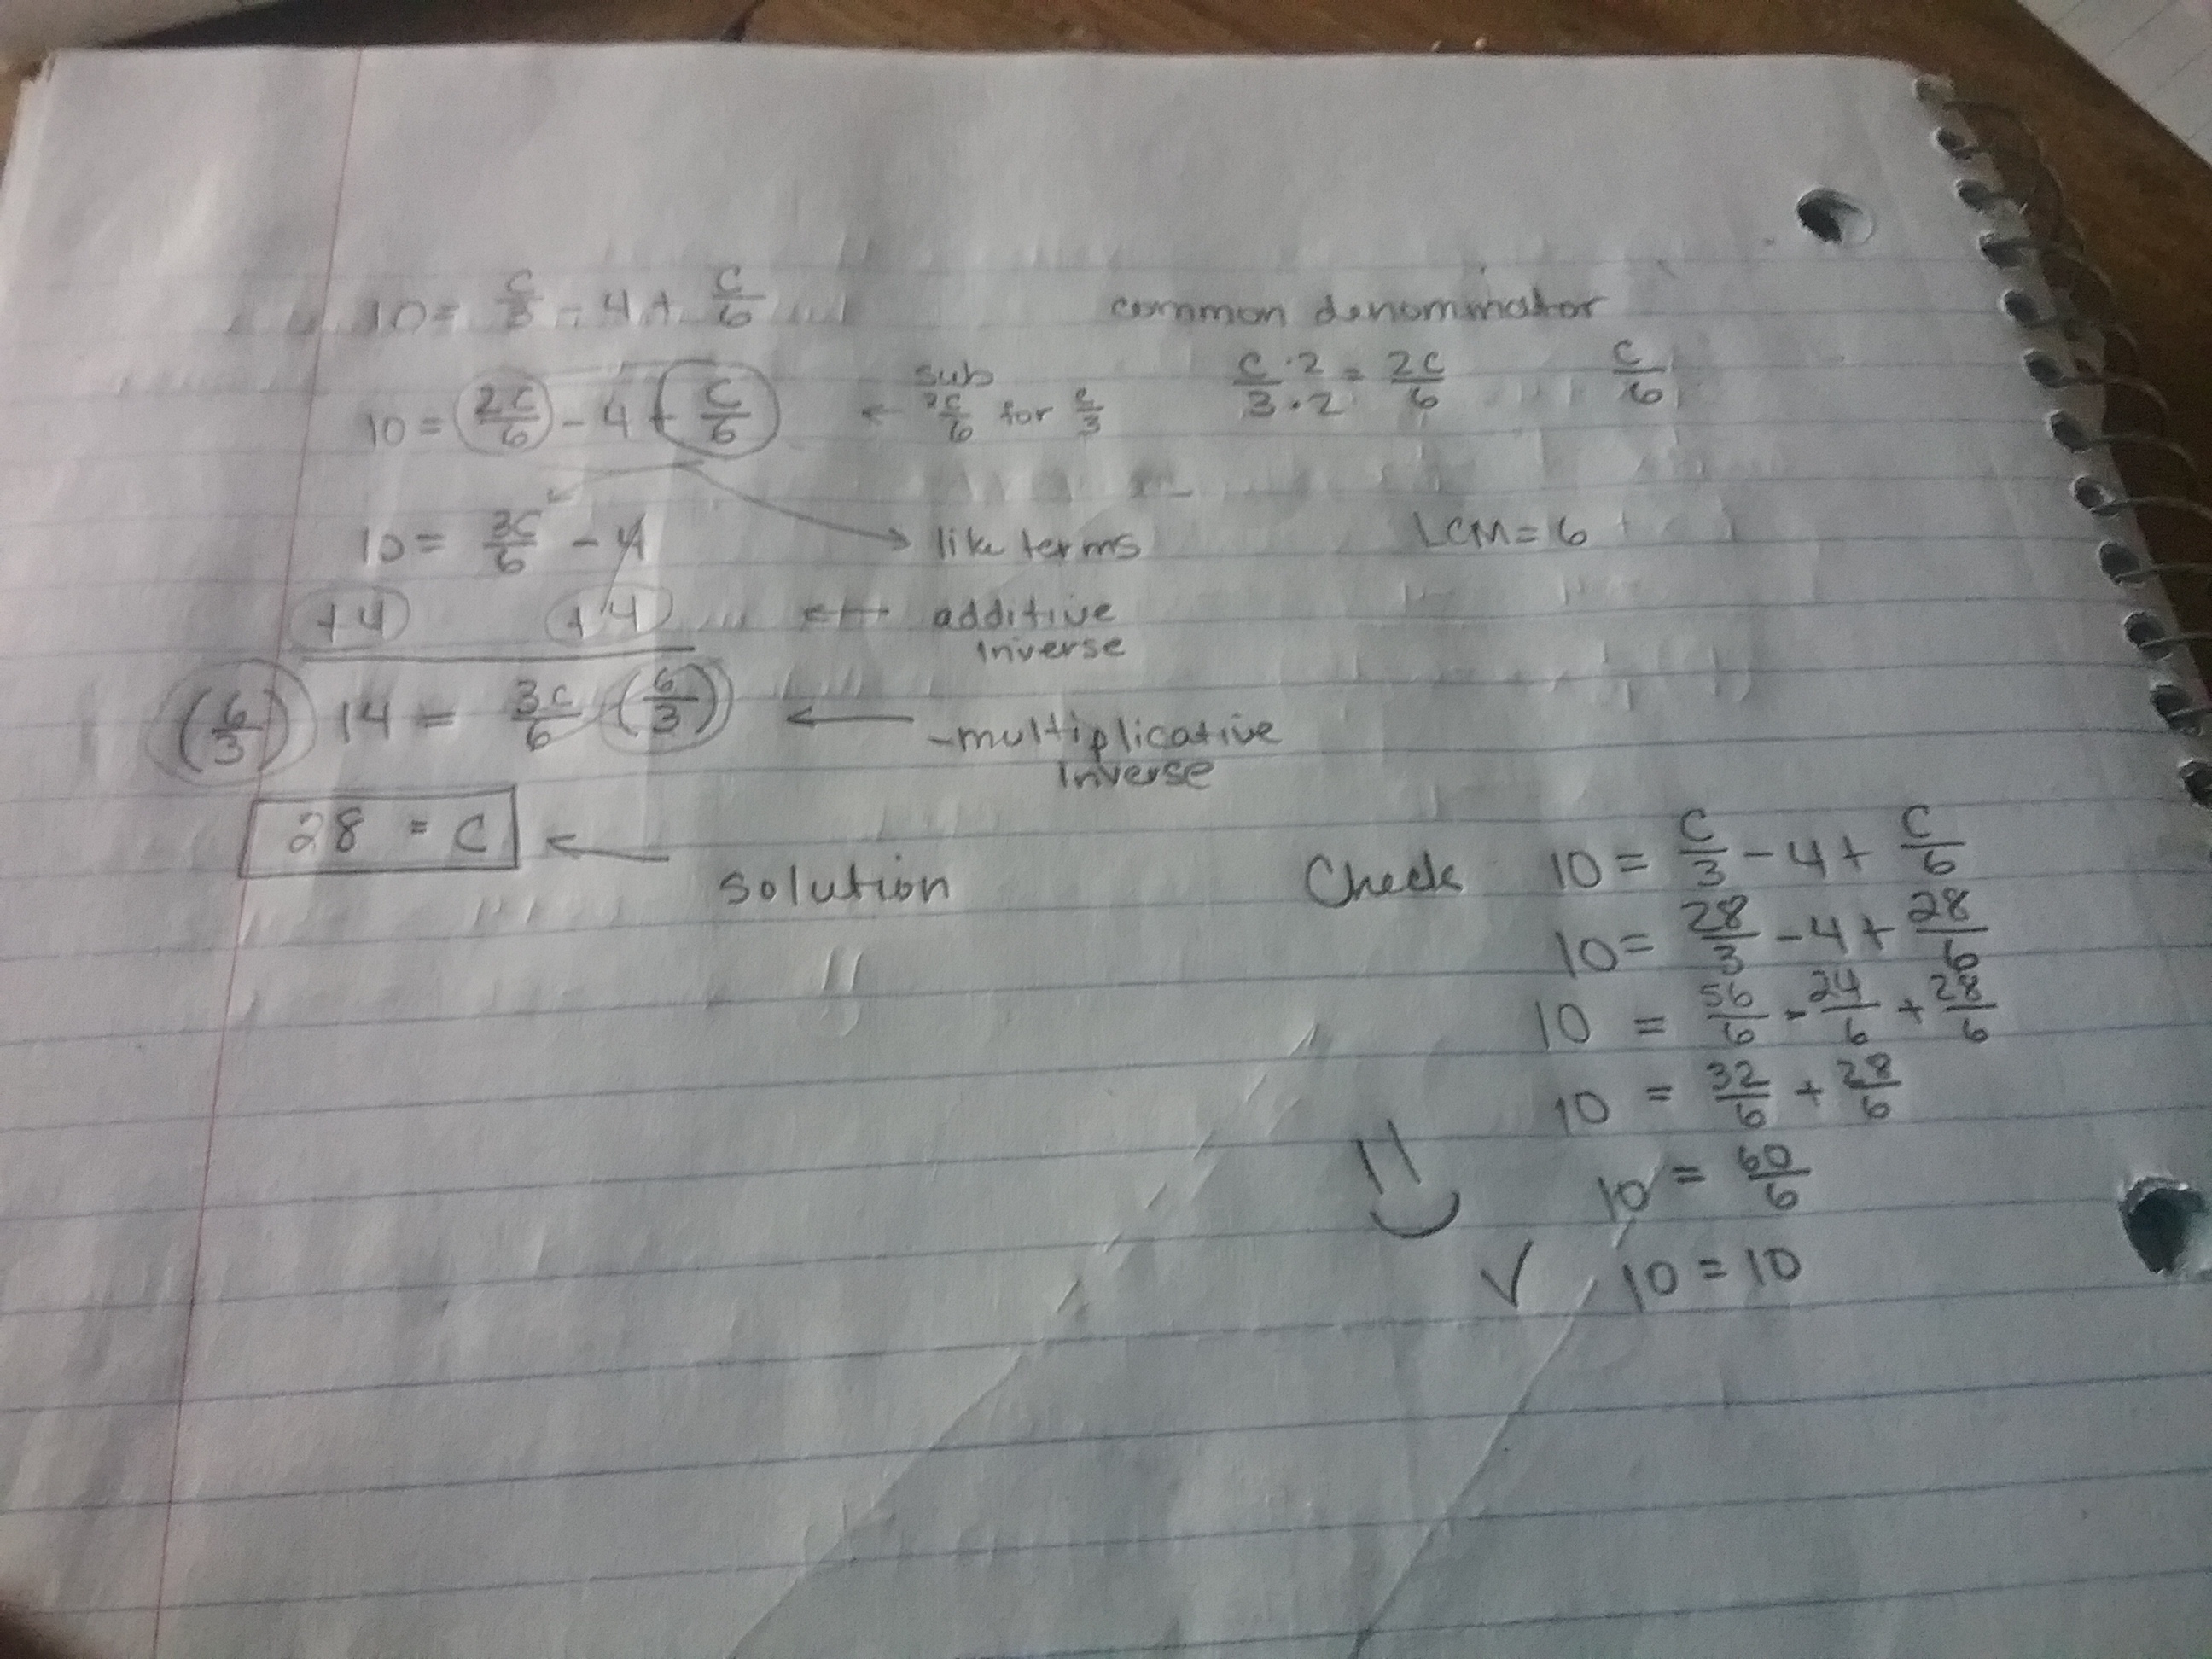 10 = c/3 - 4 + c/6
common denominator
10 = 2c/6 - 4 + c/6 ← sub 2c/6 for c/3
c·2/3·2 = 2c/6 c/6
10 = 3c/6 - 4 like terms
LCM = 6
+4 +4 ← additive
inverse
(6/3) 14 = 3c/6 (6/3) ← multiplicative
inverse
28 = c ← solution
Check 10 = c/3 - 4 + c/6
10 = 28/3 - 4 + 28/6
10 = 56/6 - 24/6 + 28/6
10 = 32/6 + 28/6
10 = 60/6
√ 10 = 10